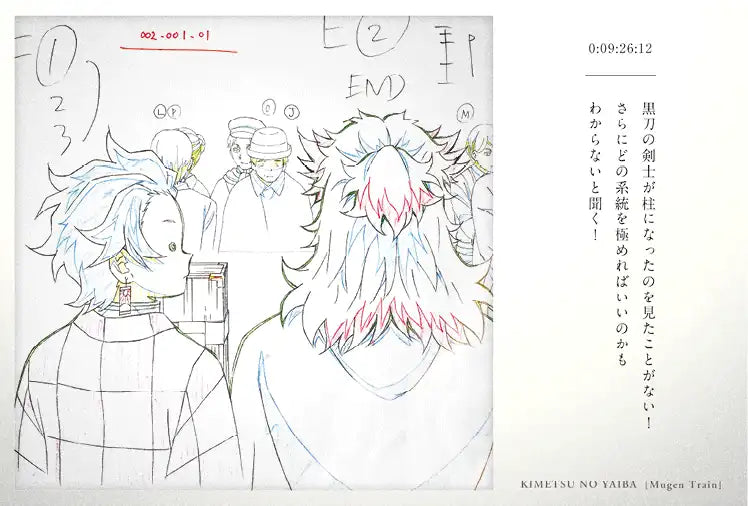 002-001-01
1
2
3
2
END
L P
J
M
0:09:26:12
黒刀の剣士が柱になったのを見たことがない！
さらにどの系統を極めればいいのかも
わからないと聞く！
KIMETSU NO YAIBA [Mugen Train]